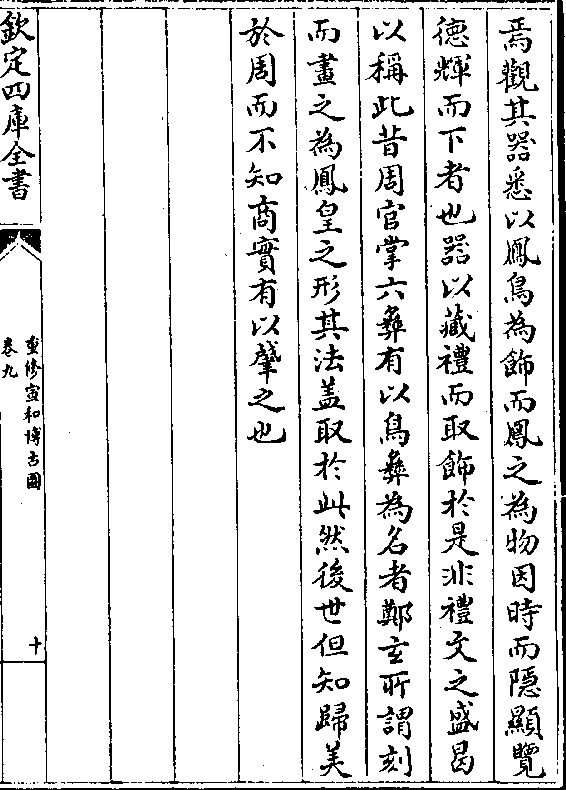 焉觀其器悉以鳳鳥為飾而鳳之為物因時而隱顯覽
德輝而下者也器以藏禮而取飾於是非禮文之盛曷
以稱此昔周官掌六彝有以鳥彝為名者鄭玄所謂刻
而畫之為鳳皇之形其法蓋取於此然後世但知歸美
於周而不知商實有以肇之也
欽定四庫全書
重修宣和博古圖
卷九
十